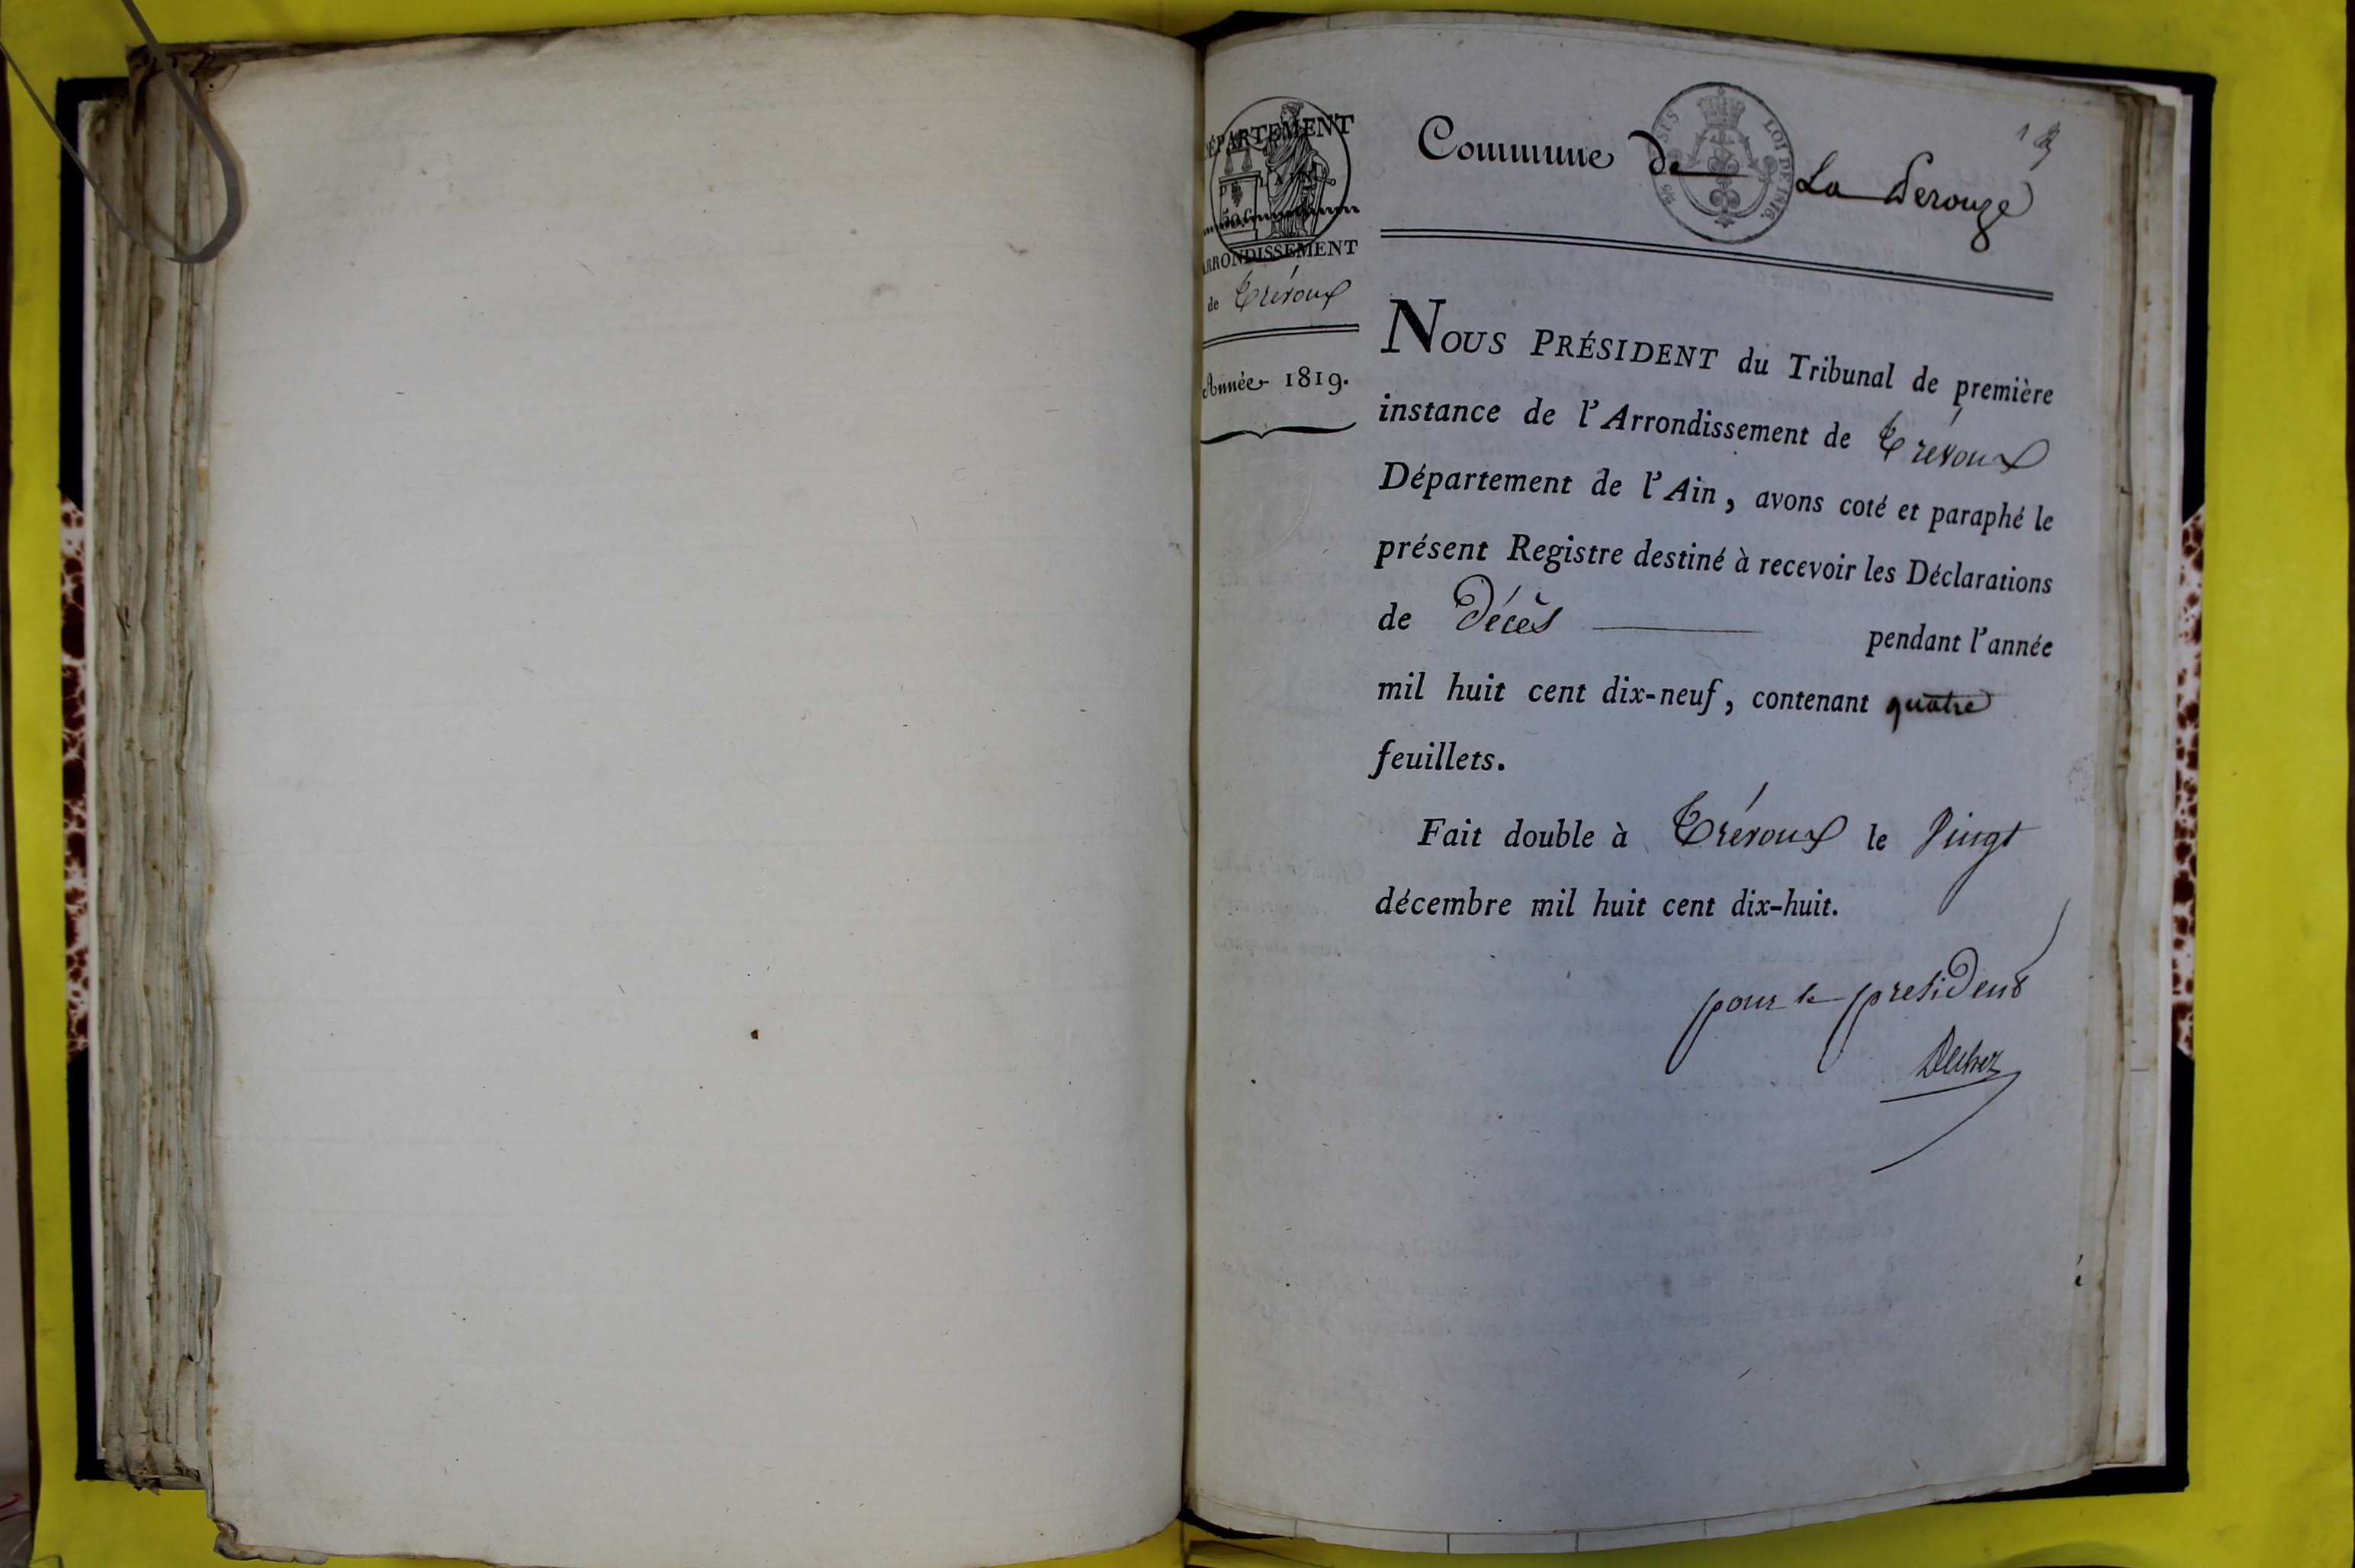 DÉPARTEMENT
DE L'AIN
50 C.
ARRONDISSEMENT
de Trévoux
Année 1819.
LOI DE 1816.
Commune de La Perouze
NOUS PRÉSIDENT du Tribunal de première
instance de l'Arrondissement de Trévoux
Département de l'Ain, avons coté et paraphé le
présent Registre destiné à recevoir les Déclarations
de Décès pendant l'année
mil huit cent dix-neuf, contenant quatre
feuillets.
Fait double à Trévoux le Vingt
décembre mil huit cent dix-huit.
pour le president